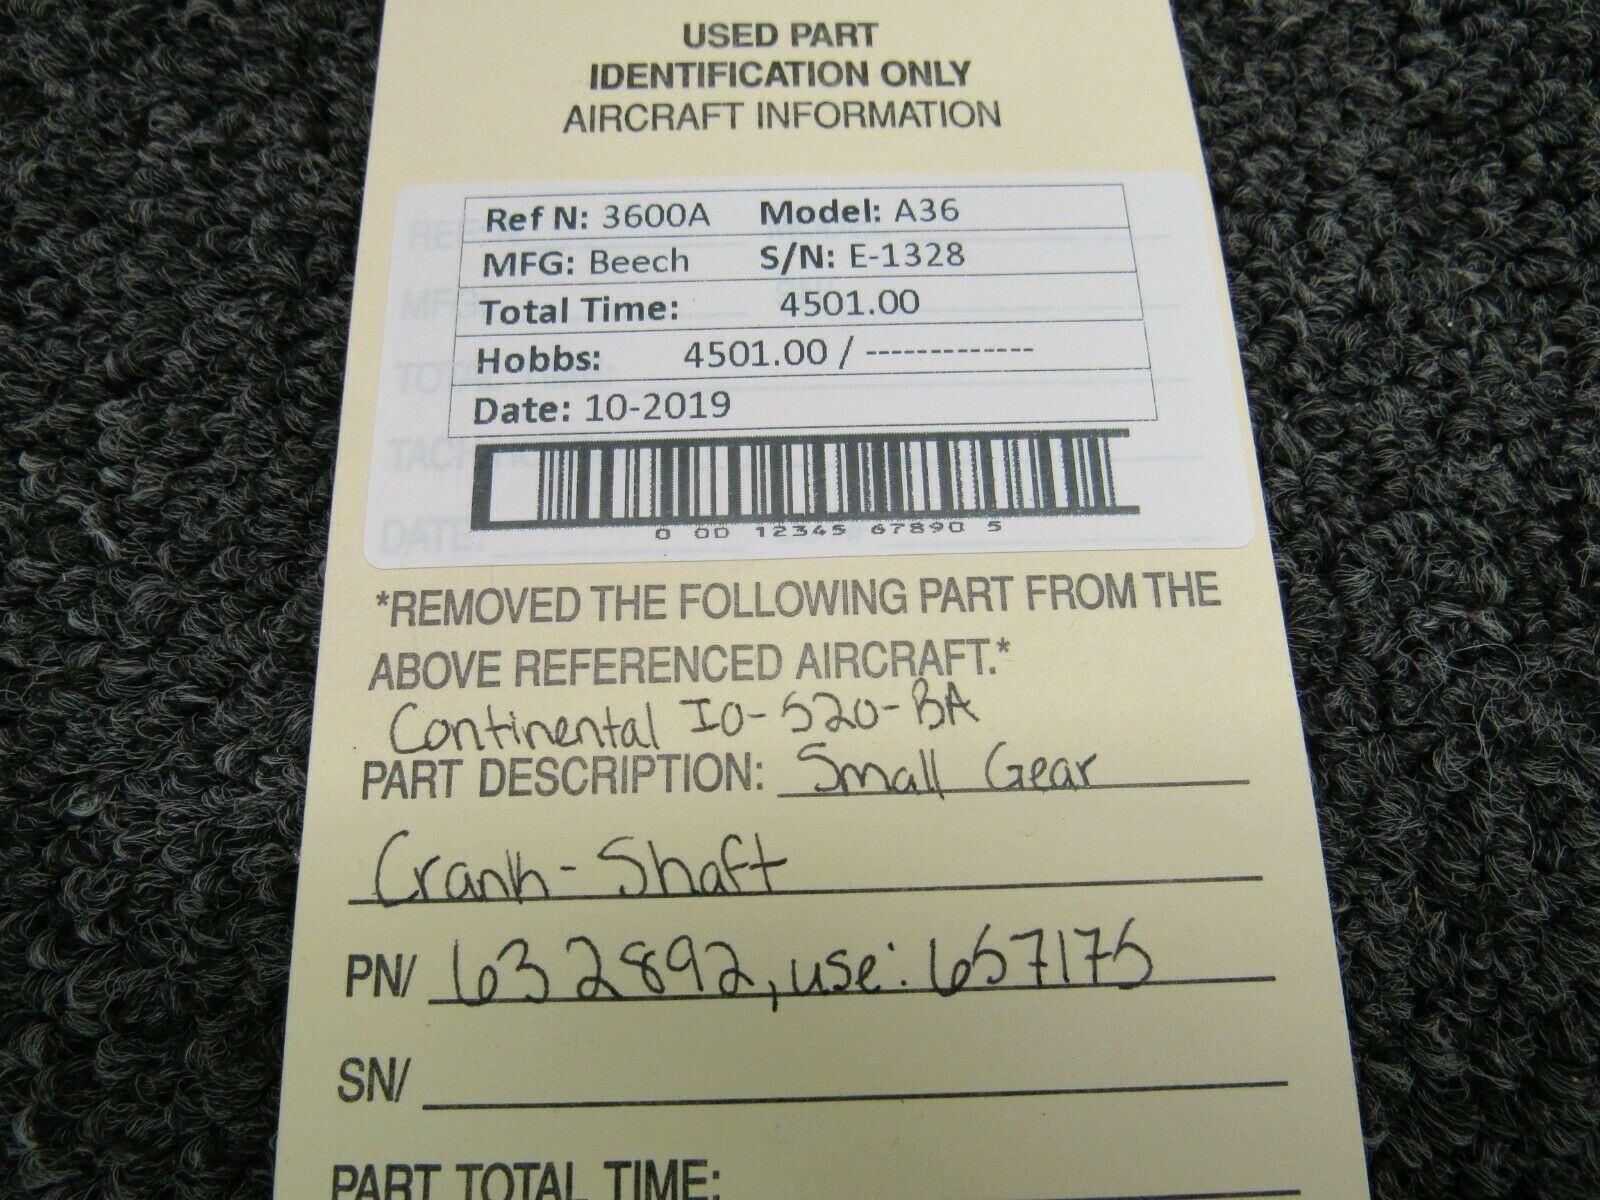 USED PART
IDENTIFICATION ONLY
AIRCRAFT INFORMATION
Ref N: 3600A Model: A36
MFG: Beech S/N: E-1328
Total Time: 4501.00
Hobbs: 4501.00 / -------------
Date: 10-2019
0 00 12345 67890 5
DATE:
*REMOVED THE FOLLOWING PART FROM THE
ABOVE REFERENCED AIRCRAFT.*
Continental IO-520-BA
PART DESCRIPTION: Small Gear
Crank-Shaft
PN/ 632892, use: 657175
SN/
PART TOTAL TIME: